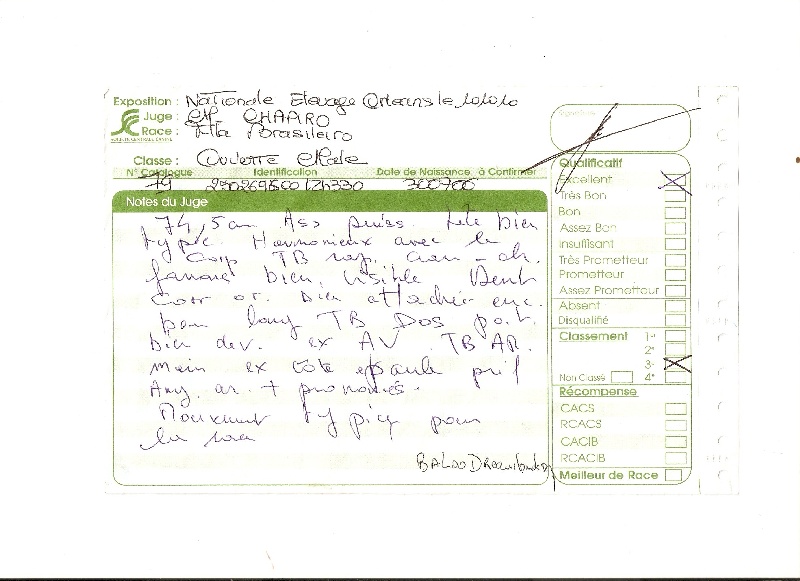 Exposition : Nationale Elevage Orleans le 10.10.10
Juge : CHAPIRO
Race : Fila Brasileiro
SOCIÉTÉ CENTRALE CANINE
Classe : Ouverte Male
N° Catalogue Identification Date de Naissance à Confirmer
79 250269500 300700
Signature
Notes du Juge
74,5 cm Ass puiss. tete bien
typée. Harmonieux avec le
Corp TB rap. cran - ch.
fanons bien visible Dent
Corr or. bien attachée enc.
bon long TB Dos poit.
bien dev. ex AV TB AR.
main ex cote epaule pref
Ang. ar. + prononcés.
Mouvement typiq pour
la race
BALOO
Qualificatif
Excellent X
Très Bon
Bon
Assez Bon
Insuffisant
Très Prometteur
Prometteur
Assez Prometteur
Absent
Disqualifié
Classement 1er
2e
3e X
Non Classé 4e
Récompense
CACS
RCACS
CACIB
RCACIB
Meilleur de Race